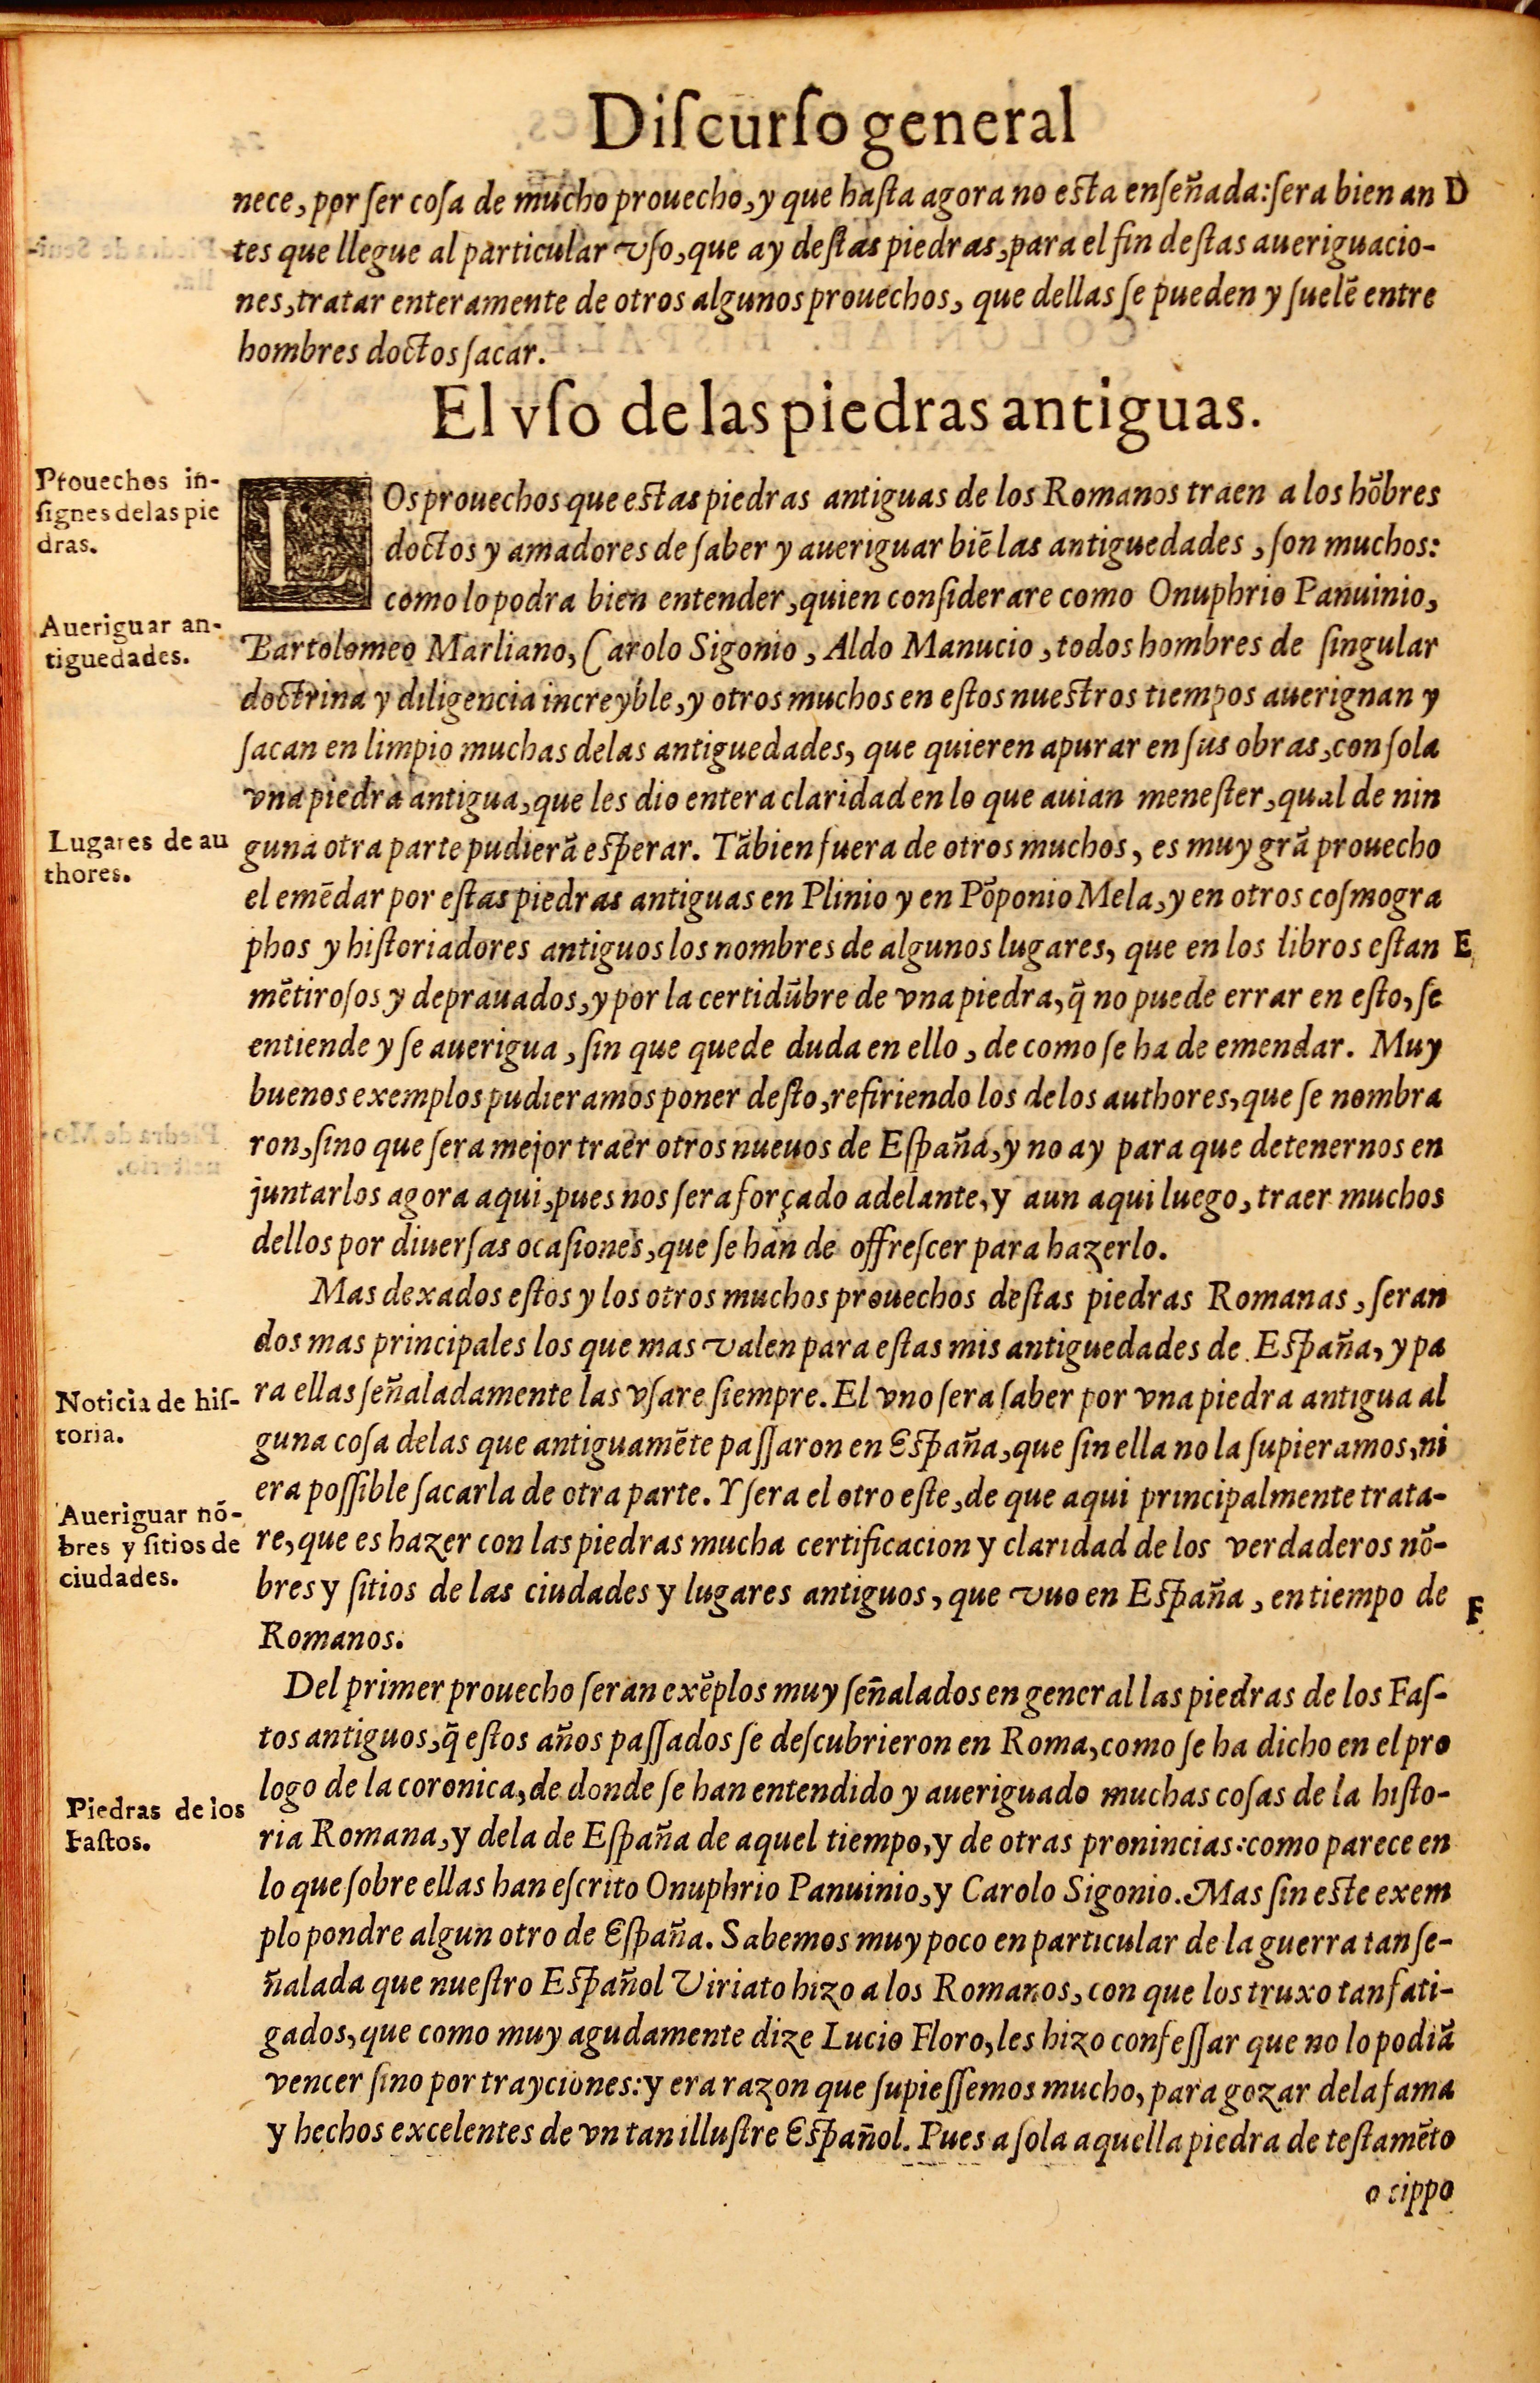 Diſcurſo general
nece, por ſer coſa de mucho prouecho, y que haſta agora no eſta enſeñada: ſera bien an D
tes que llegue al particular vſo, que ay deſtas piedras, para el fin deſtas aueriguacio-
nes, tratar enteramente de otros algunos prouechos, que dellas ſe pueden y ſuelē entre
hombres doctos ſacar.
El vſo de las piedras antiguas.
Prouechos in-
ſignes delas pie
dras.
LOs prouechos que eſtas piedras antiguas de los Romanos traen a los hōbres
doctos y amadores de ſaber y aueriguar biē las antiguedades, ſon muchos:
como lo podra bien entender, quien conſiderare como Onuphrio Panuinio,
Aueriguar an-
tiguedades.
Bartolomeo Marliano, Carolo Sigonio, Aldo Manucio, todos hombres de ſingular
doctrina y diligencia increyble, y otros muchos en eſtos nueſtros tiempos auerignan y
ſacan en limpio muchas delas antiguedades, que quieren apurar en ſus obras, con ſola
vna piedra antigua, que les dio entera claridad en lo que auian meneſter, qual de nin
Lugares de au
thores.
guna otra parte pudierā eſperar. Tābien fuera de otros muchos, es muy grā prouecho
el emēdar por eſtas piedras antiguas en Plinio y en Pōponio Mela, y en otros coſmogra
phos y hiſtoriadores antiguos los nombres de algunos lugares, que en los libros eſtan E
mētiroſos y deprauados, y por la certidūbre de vna piedra, q̄ no puede errar en eſto, ſe
entiende y ſe auerigua, ſin que quede duda en ello, de como ſe ha de emendar. Muy
buenos exemplos pudieramos poner deſto, refiriendo los de los authores, que ſe nombra
ron, ſino que ſera mejor traer otros nueuos de Eſpaña, y no ay para que detenernos en
juntarlos agora aqui, pues nos ſera forçado adelante, y aun aqui luego, traer muchos
dellos por diuerſas ocaſiones, que ſe han de offreſcer para hazerlo.
Mas dexados eſtos y los otros muchos prouechos deſtas piedras Romanas, ſeran
dos mas principales los que mas valen para eſtas mis antiguedades de Eſpaña, y pa
Noticia de hiſ-
toria.
ra ellas ſeñaladamente las vſare ſiempre. El vno ſera ſaber por vna piedra antigua al
guna coſa delas que antiguamēte paſſaron en Eſpaña, que ſin ella no la ſupieramos, ni
era poſſible ſacarla de otra parte. Y ſera el otro eſte, de que aqui principalmente trata-
Aueriguar nō-
bres y ſitios de
ciudades.
re, que es hazer con las piedras mucha certificacion y claridad de los verdaderos nō-
bres y ſitios de las ciudades y lugares antiguos, que vuo en Eſpaña, en tiempo de F
Romanos.
Del primer prouecho ſeran exēplos muy ſeñalados en general las piedras de los Faſ-
tos antiguos, q̄ eſtos años paſſados ſe deſcubrieron en Roma, como ſe ha dicho en el pro
logo de la coronica, de donde ſe han entendido y aueriguado muchas coſas de la hiſto-
Piedras de los
Faſtos.
ria Romana, y dela de Eſpaña de aquel tiempo, y de otras pronincias: como parece en
lo que ſobre ellas han eſcrito Onuphrio Panuinio, y Carolo Sigonio. Mas ſin eſte exem
plo pondre algun otro de Eſpaña. Sabemos muy poco en particular de la guerra tan ſe-
ñalada que nueſtro Eſpañol Viriato hizo a los Romanos, con que los truxo tan fati-
gados, que como muy agudamente dize Lucio Floro, les hizo confeſſar que no lo podiā
vencer ſino por trayciones: y era razon que ſupieſſemos mucho, para gozar dela fama
y hechos excelentes de vn tan illuſtre Eſpañol. Pues a ſola aquella piedra de teſtamēto
o cippo